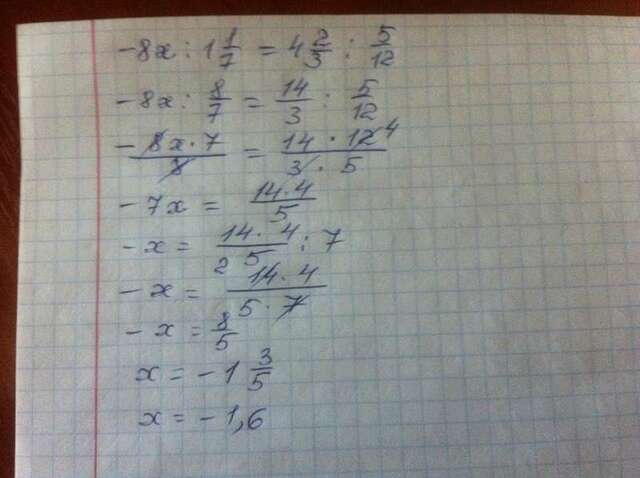 -8x : 1 1/7 = 4 2/3 : 5/12
-8x : 8/7 = 14/3 : 5/12
-8x·7/8 = 14·12 4/3·5
-7x = 14·4/5
-x = 14·4/5 : 7
-x = 2 14·4/5·7
-x = 8/5
x = -1 3/5
x = -1,6